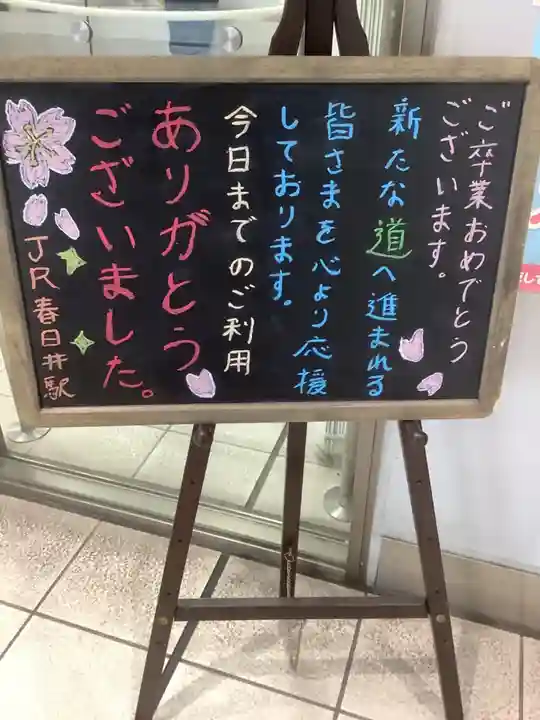 ご卒業おめでとう
ございます。
新たな道へ進まれる
皆さまを心より応援
しております。
今日までのご利用
ありがとう
ございました。
JR春日井駅